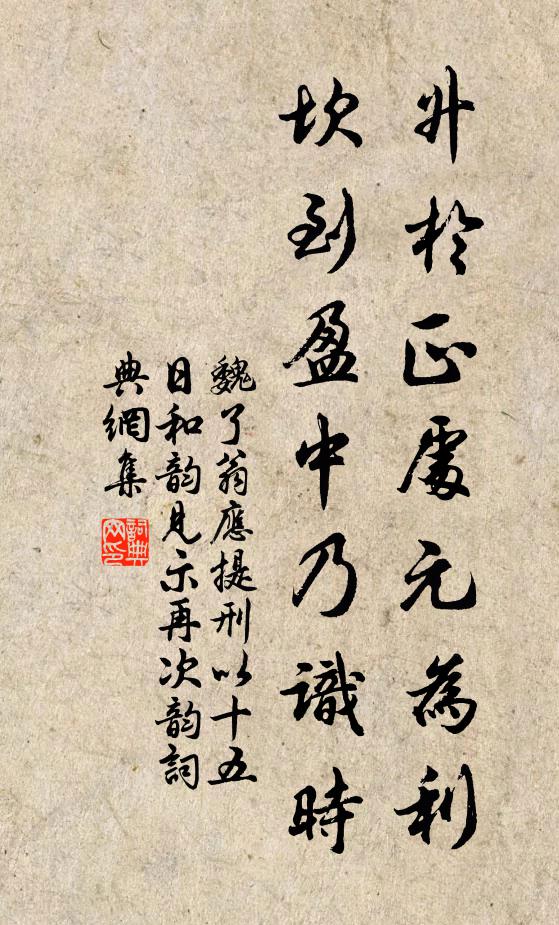 升於正處元為利
坎到盈中乃識時
魏了翁應提刑以十五
日和韵見示再次韵詞
典網集
詞典
网印